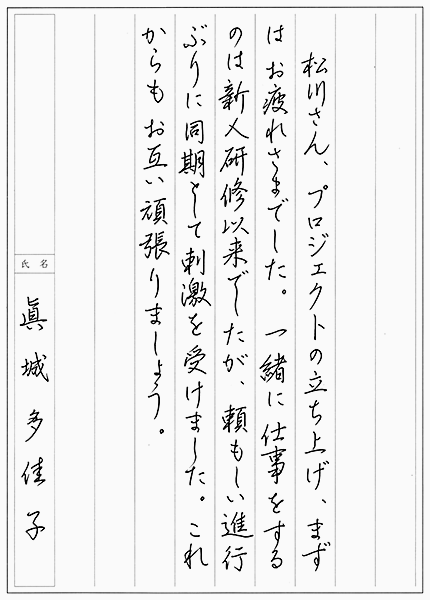 松川さん、プロジェクトの立ち上げ、まず
はお疲れさまでした。一緒に仕事をする
のは新人研修以来でしたが、頼もしい進行
ぶりに同期として刺激を受けました。これ
からもお互い頑張りましょう。
氏名
眞城多佳子